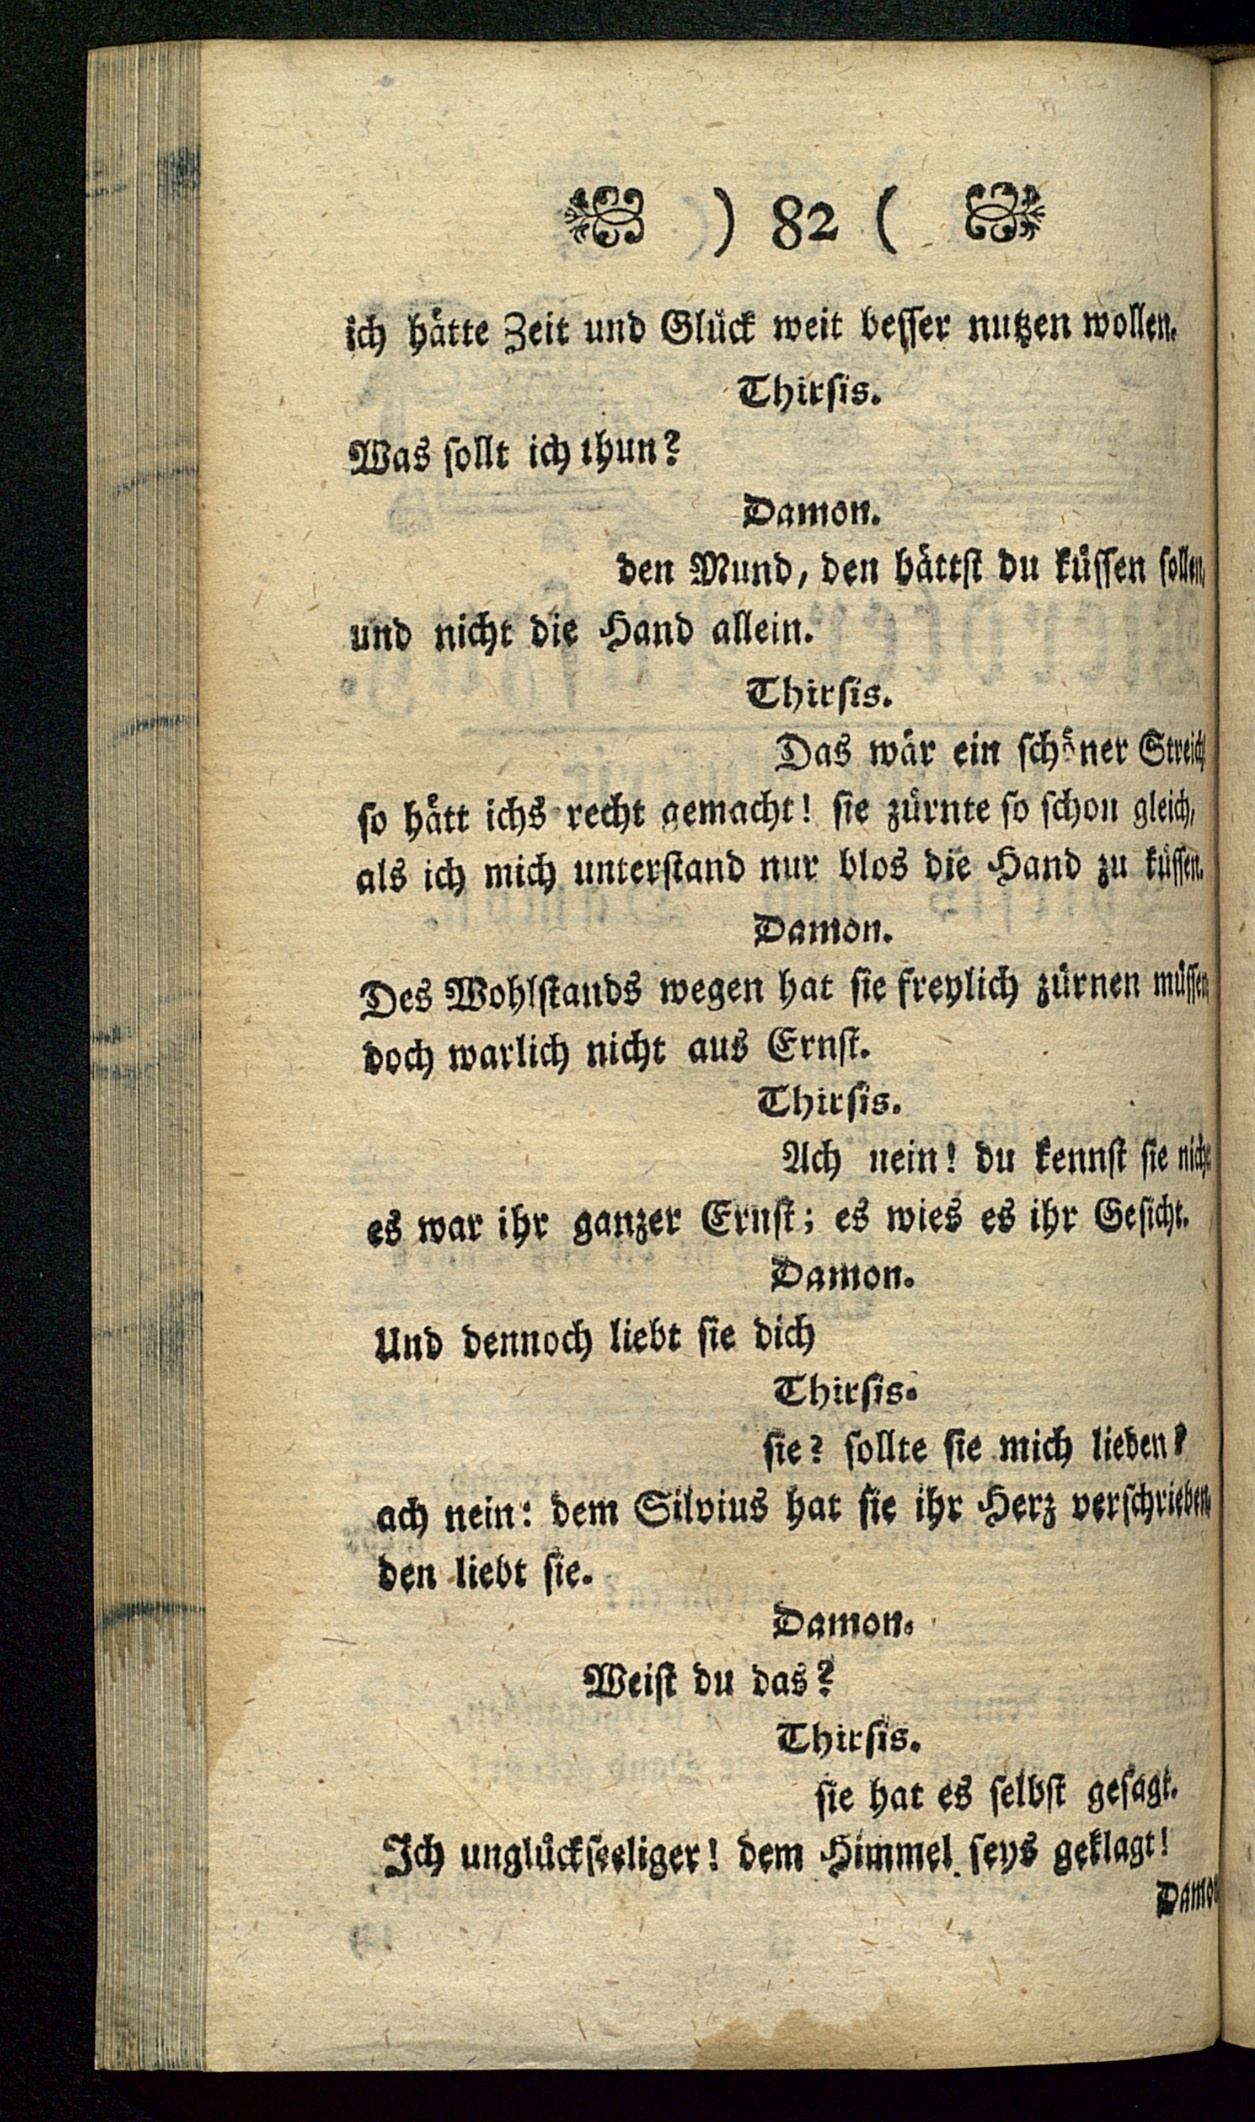 ) 82 (
ich hätte Zeit und Glück weit besser nutzen wollen.
Thirsis.
Was sollt ich thun?
Damon.
den Mund, den hättst du küssen sollen,
und nicht die Hand allein.
Thirsis.
Das wär ein schöner Streich
so hätt ichs recht gemacht! sie zürnte so schon gleich,
als ich mich unterstand nur blos die Hand zu küssen.
Damon.
Des Wohlstands wegen hat sie freylich zürnen müssen
doch warlich nicht aus Ernst.
Thirsis.
Ach nein! du kennst sie nicht
es war ihr ganzer Ernst; es wies es ihr Gesicht.
Damon.
Und dennoch liebt sie dich
Thirsis.
sie? sollte sie mich lieben?
ach nein: dem Silvius hat sie ihr Herz verschrieben,
den liebt sie.
Damon.
Weist du das?
Thirsis.
sie hat es selbst gesagt.
Ich unglückseeliger! dem Himmel seys geklagt!
Damon